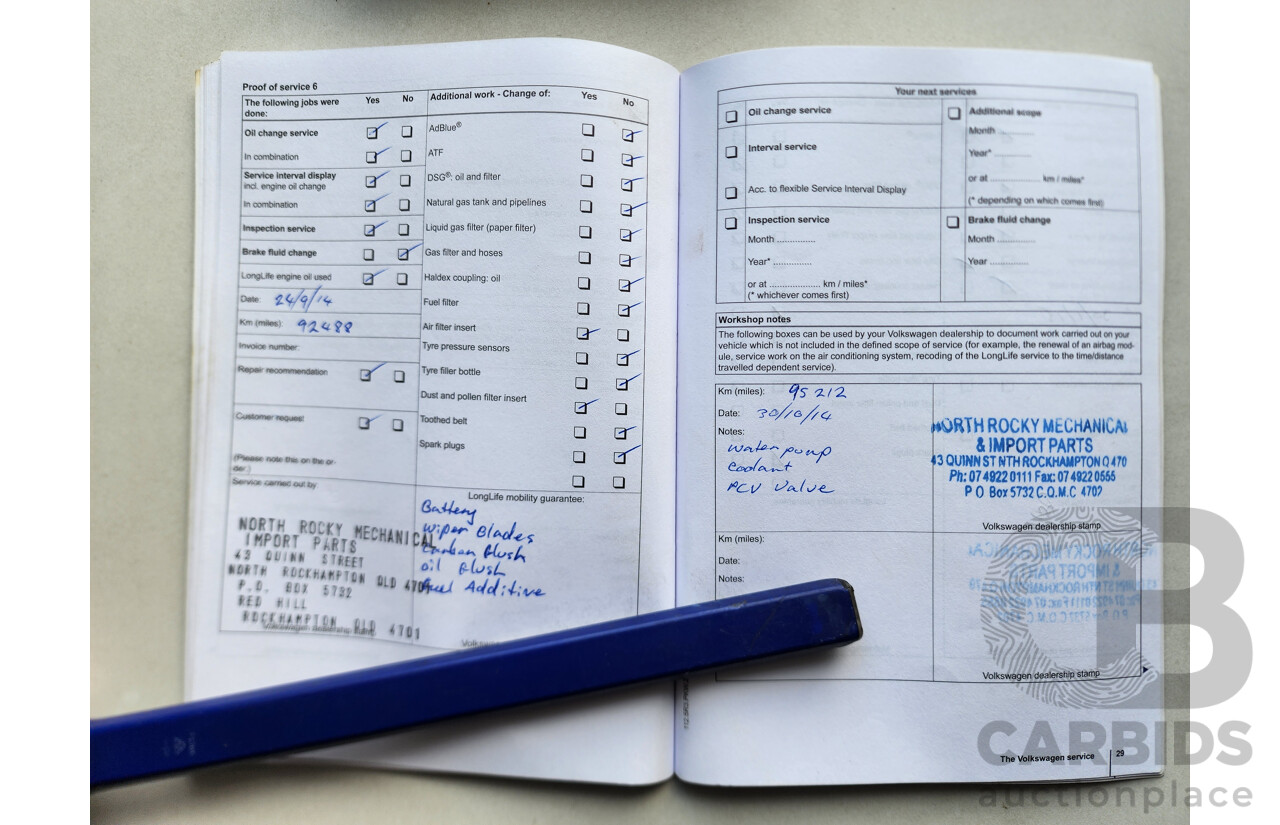 Proof of service 6
The following jobs were done: Yes No
Oil change service
In combination
Service interval display
incl. engine oil change
In combination
Inspection service
Brake fluid change
LongLife engine oil used
Date: 24/9/14
Km (miles): 92488
Invoice number:
Repair recommendation
Customer request
(Please note this on the or-
der.)
Service carried out by:
NORTH ROCKY MECHANICAL
IMPORT PARTS
43 QUINN STREET
NORTH ROCKHAMPTON QLD 4701
P.O. BOX 5732
RED HILL
ROCKHAMPTON QLD 4701
Volkswagen dealership stamp
Additional work - Change of: Yes No
AdBlue®
ATF
DSG®: oil and filter
Natural gas tank and pipelines
Liquid gas filter (paper filter)
Gas filter and hoses
Haldex coupling: oil
Fuel filter
Air filter insert
Tyre pressure sensors
Tyre filler bottle
Dust and pollen filter insert
Toothed belt
Spark plugs
LongLife mobility guarantee:
Battery
Wiper Blades
flush
oil flush
fuel Additive
Your next services
Oil change service
Interval service
Acc. to flexible Service Interval Display
Inspection service
Month ..............
Year* ..............
or at .................... km / miles*
(* whichever comes first)
Additional scope
Month ..............
Year* ..............
or at .................... km / miles*
(* depending on which comes first)
Brake fluid change
Month ..............
Year ..............
Workshop notes
The following boxes can be used by your Volkswagen dealership to document work carried out on your
vehicle which is not included in the defined scope of service (for example, the renewal of an airbag mod-
ule, service work on the air conditioning system, recoding of the LongLife service to the time/distance
travelled dependent service).
Km (miles): 95212
Date: 30/10/14
Notes:
water pump
coolant
PCV Valve
NORTH ROCKY MECHANICAL
& IMPORT PARTS
43 QUINN ST NTH ROCKHAMPTON Q 470
Ph: 07 4922 0111 Fax: 07 4922 0555
P O Box 5732 C.Q.M.C 4702
Volkswagen dealership stamp
Km (miles):
Date:
Notes:
Volkswagen dealership stamp
The Volkswagen service 29
CARBIDS
auctionplace